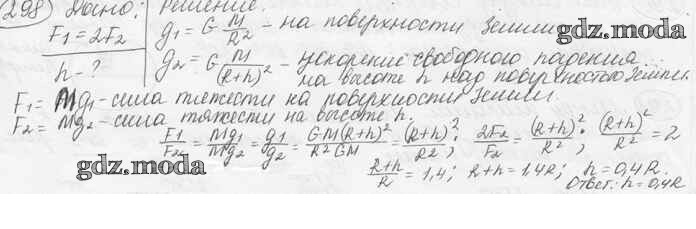 298) Дано: Решение.
F₁ = 2F₂
h - ?
g₁ = G M/R² - на поверхности Земли
gdz.moda
g₂ = G M/(R+h)² - ускорение свободного падения
на высоте h над поверхностью Земли.
F₁ = Mg₁ - сила тяжести на поверхности Земли.
F₂ = Mg₂ - сила тяжести на высоте h.
F₁/F₂ = Mg₁/Mg₂ = g₁/g₂ = GM(R+h)²/R²GM = (R+h)²/R²; 2F₂/F₂ = (R+h)²/R²; (R+h)²/R² = 2
gdz.moda
R+h/R = 1,4; R+h = 1,4R; h = 0,4R.
Ответ: h = 0,4R